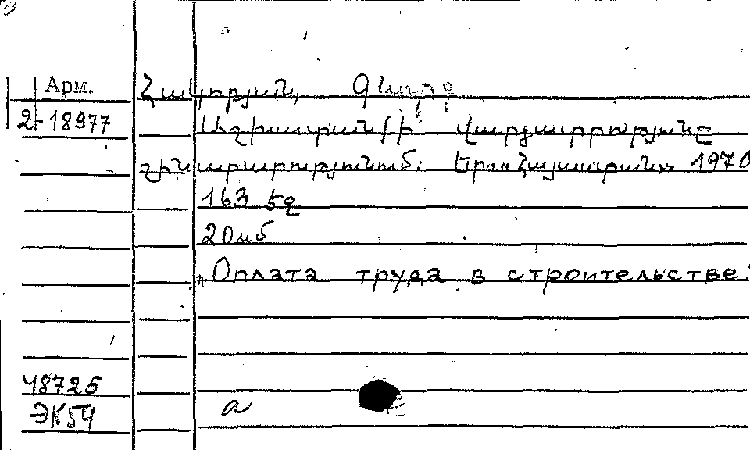 Арм.
2-18977
Հակոբյան, Գևորգ
Աշխատանքի վարձատրությունը
շինարարությունում. Եր. «Հայաստան» 1970
163 էջ
20սմ
"Оплата труда в строительстве"
48725
ЭК54 a